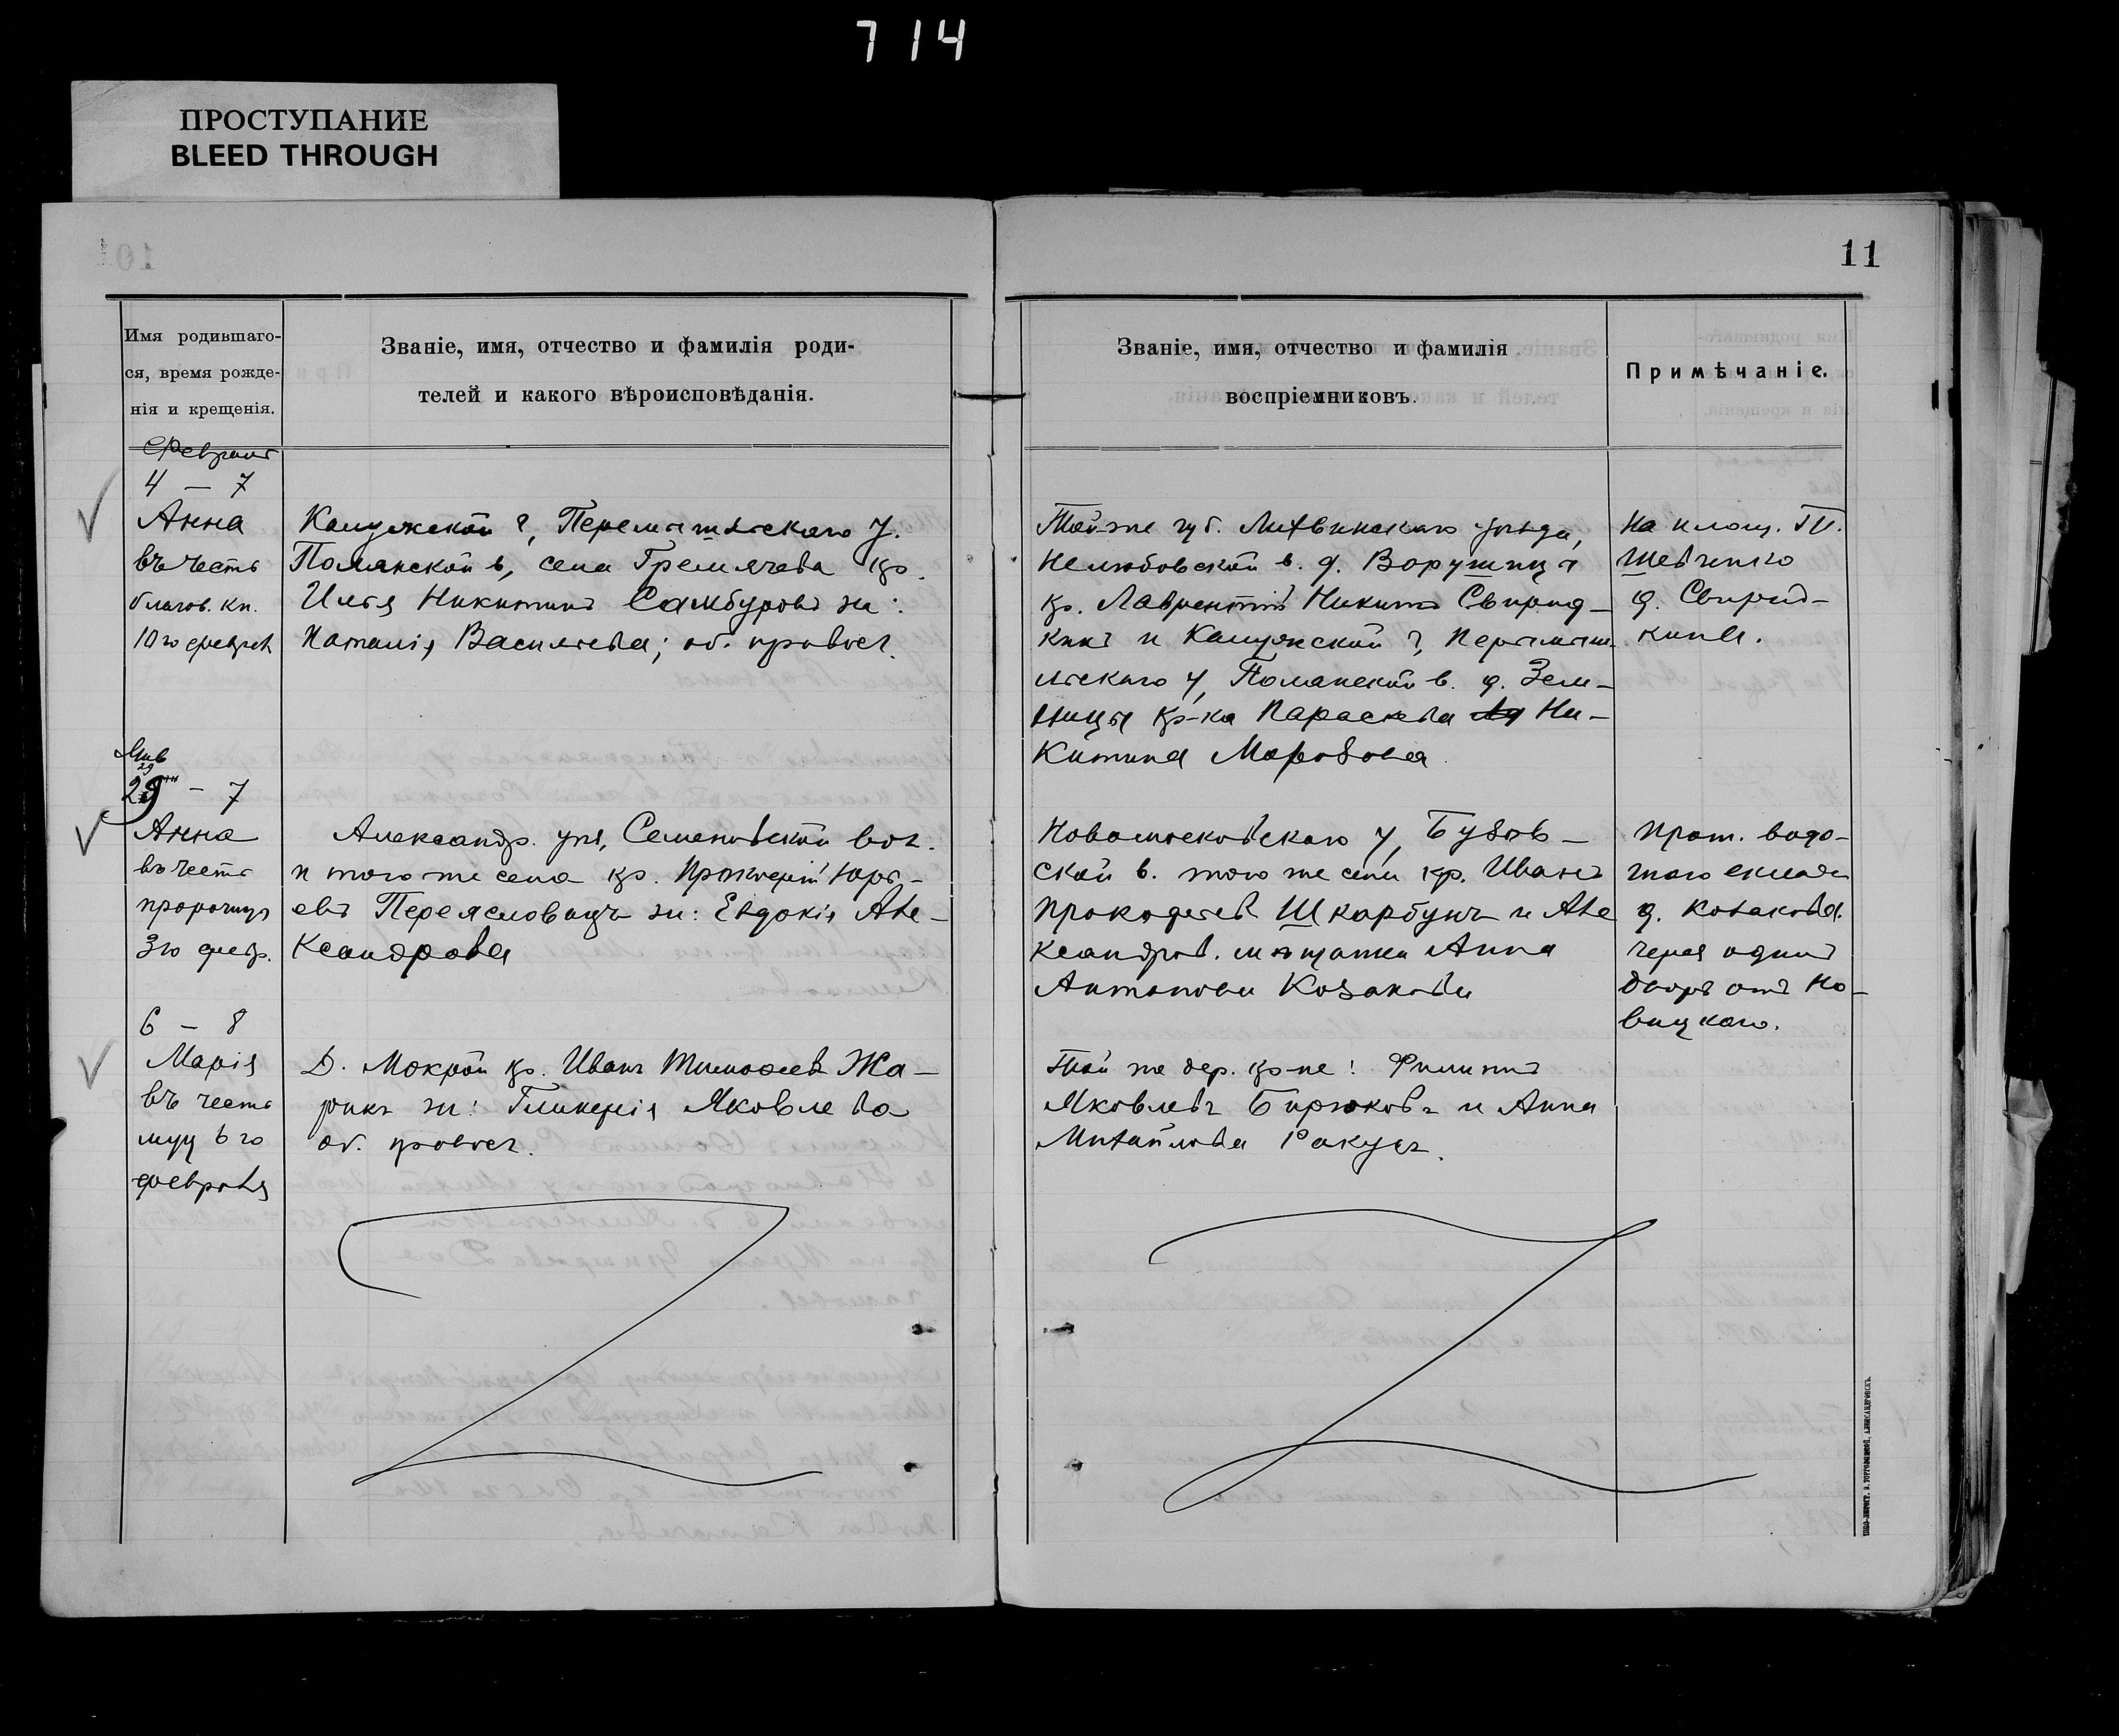 714
ПРОСТУПАНИЕ
BLEED THROUGH
11
Имя родившаго-
ся, время рожде-
нія и крещенія.
Званіе, имя, отчество и фамилія роди-
телей и какого вѣроисповѣданія.
Званіе, имя, отчество и фамилія
воспріемниковъ.
Примѣчаніе.
Февраля
4 — 7
Анна
въ честь
благов. кн.
10го февраля
Калужской г, Перемышльскаго у.
Полянской в, села Гремячева кр.
Илья Никитинъ Самбуровъ ж:
Наталія Васильева; об. правосл.
Той-же губ. Лихвинскаго уѣзда,
Нелюбовской в. д. Ворушица
кр. Лаврентій Никит. Свирид-
кинъ и Калужской г, Перемыш-
льскаго у, Полянской в. д. Зем-
ницы кр-ка Параскева Ни-
китина Морозова.
На площ. П.
Шевченко
д. Свирид-
кина.
Янв
29
29 — 7
Анна
въ честь
пророчицы
3го февр.
Александр. уѣз, Семеновской вол.
и того же села кр. Прокопій Юрь-
евъ Переясловецъ ж: Евдокія Але-
ксандрова
Новомосковскаго у,
ской в. того же села кр. Иванъ
Прокофьевъ Шкарбунъ и Але
ксандров. мѣщанка Анна
Антонова Козакова
Прот. вадо-
чнаго склада
д. Козакова.
черезъ одинъ
дворъ отъ Но-
вицкаго.
6 — 8
Марія
въ честь
муц 6го
февраля
Д. Мокрой кр. Иванъ Тимофеевъ Жа-
рикъ ж: Гликерія Яковлева
об. правосл.
Той же дер. кр-не: Филиппъ
Яковлевъ Бирюковъ и Анна
Михайлова Ракуса.